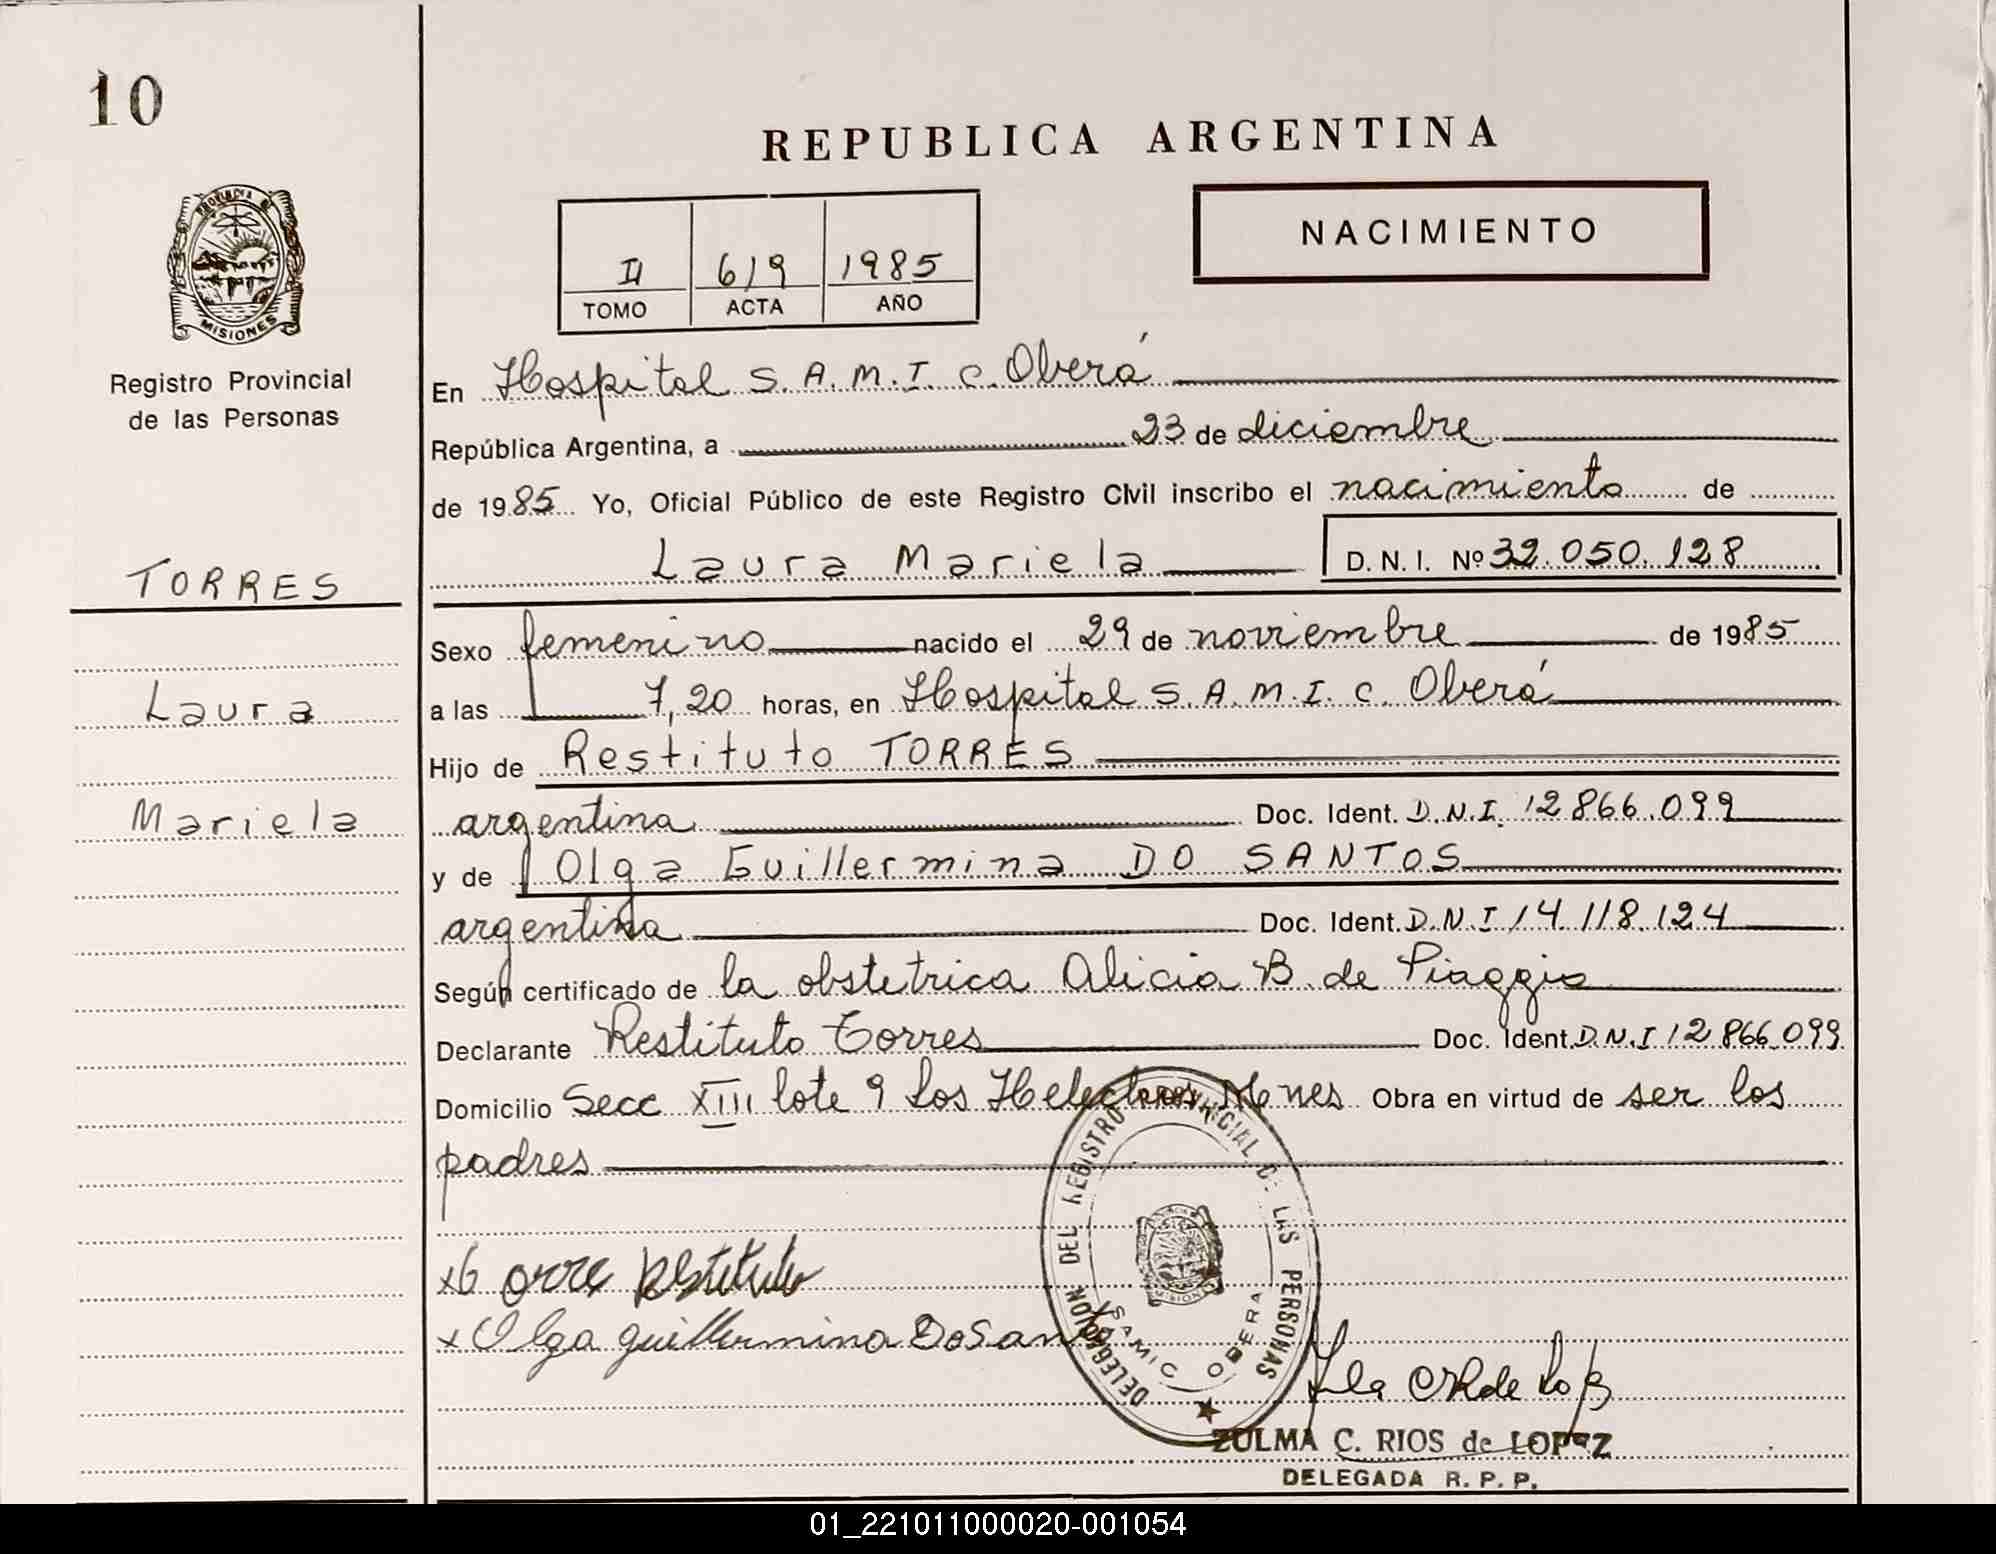 10
REPUBLICA ARGENTINA
NACIMIENTO
II 619 1985
TOMO ACTA AÑO
PROVINCIA DE
MISIONES
Registro Provincial
de las Personas
TORRES
Laura
Mariela
En Hospital S.A.M.I.C. Oberá
República Argentina, a 23 de diciembre
de 1985 Yo, Oficial Público de este Registro Civil inscribo el nacimiento de
Laura Mariela D.N.I. Nº 32.050.128
Sexo femenino nacido el 29 de noviembre de 1985
a las 7,20 horas, en Hospital S.A.M.I.C. Oberá
Hijo de Restituto TORRES
argentina Doc. Ident. D.N.I. 12866.099
y de Olga Guillermina DO SANTOS
argentina Doc. Ident. D.N.I 14.118.124
Según certificado de la obstetrica Alicia B. de Piaggio
Declarante Restituto Torres Doc. Ident. D.N.I 12866.099
Domicilio Secc XIII lote 9 Los Helechos Mnes Obra en virtud de ser los
padres
x Torre Restituto
x Olga guillermina DoSantos
DELEGACION DEL REGISTRO PROVINCIAL DE LAS PERSONAS
MISIONES
SAMIC OBERA
ZULMA C. RIOS de LOPEZ
DELEGADA R. P. P.
01_221011000020-001054